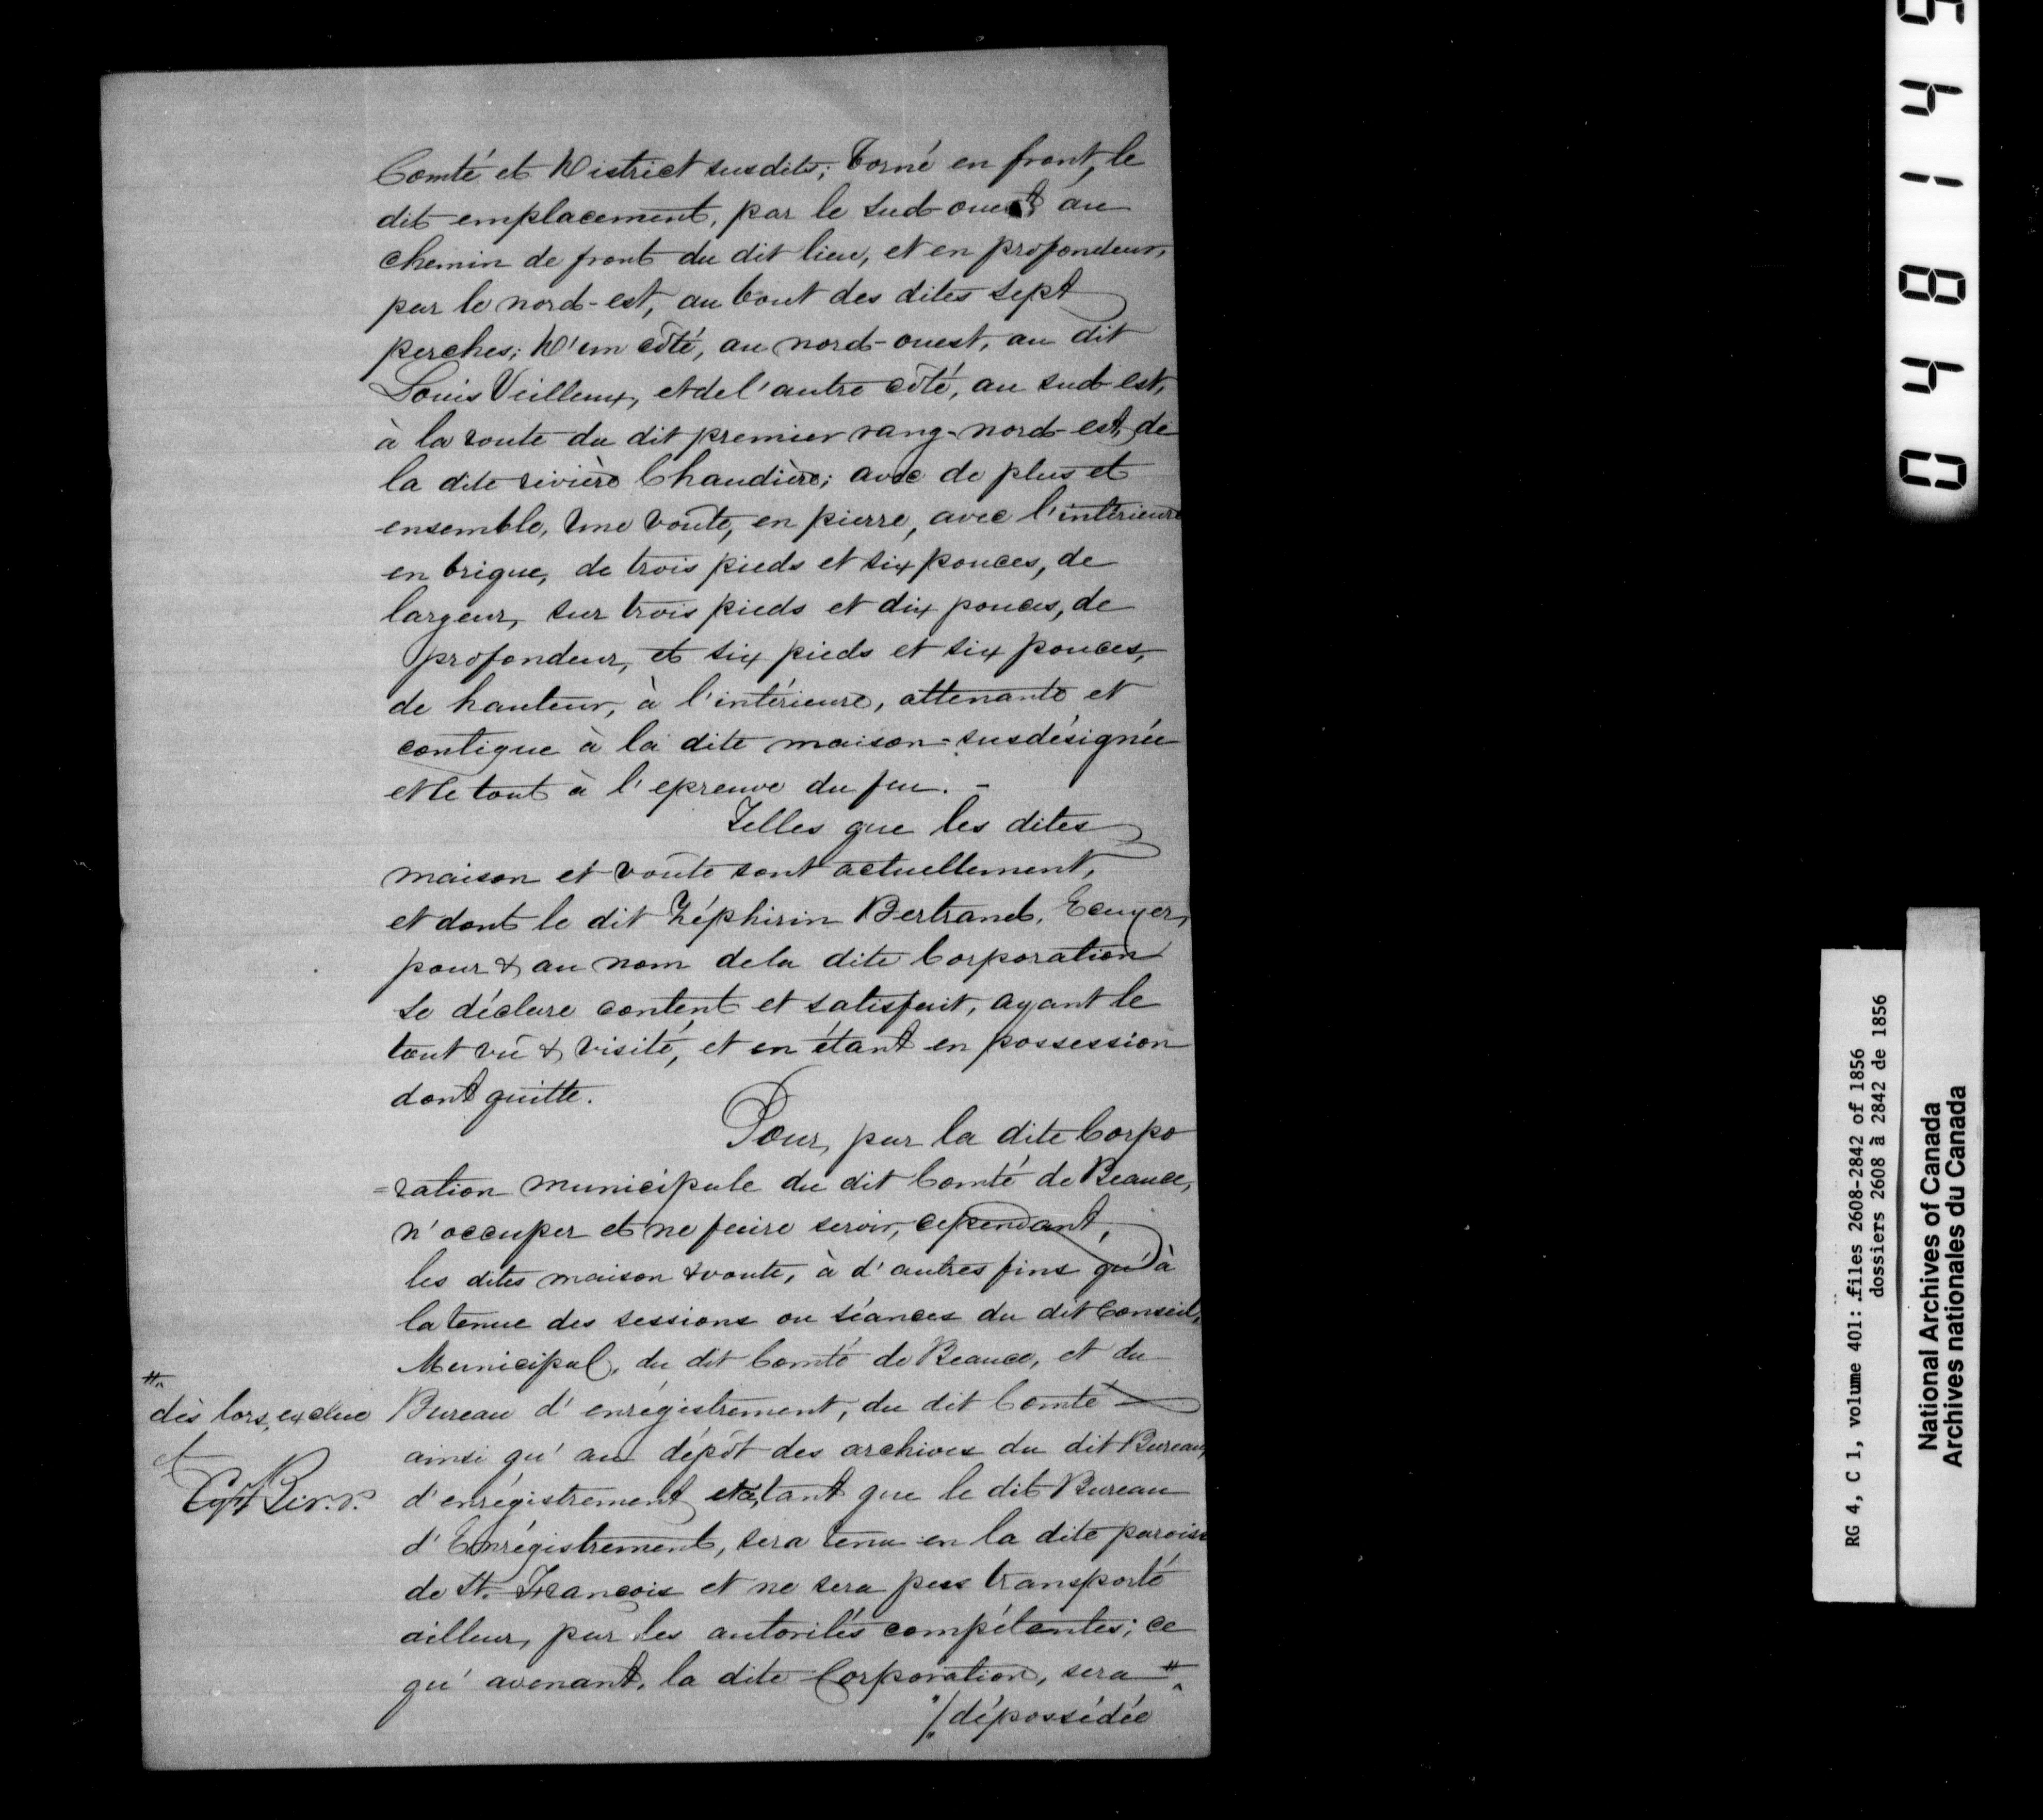 Comté et District susdits; borné en front, le
dit emplacement, par le sud-ouest au
chemin de front du dit lieu, et en profondeur,
par le nord-est, au bout des dites sept
perches; D'un côté, au nord-ouest, au dit
Louis Veilleux, et de l'autre côté, au sud-est,
à la route du dit premier rang nord-est, de
la dite rivière Chaudière; avec de plus et
ensemble, Une voûte, en pierre, avec l'intérieure
en brique, de trois pieds et six pouces, de
largeur, sur trois pieds et dix pouces, de
profondeur, et six pieds et six pouces,
de hauteur, à l'intérieure, attenante et
contigue à la dite maison susdésignée
et le tout à l'epreuve du feu. -
Telles que les dites
maison et voûte sont actuellement,
et dont le dit Zéphirin Bertrand, Ecuyer,
pour & au nom de la dite Corporation
se déclare content et satisfait, ayant le
tout vû & visité, et en étant en possession
dont quitte.
Pour, par la dite Corpo
=ration municipale du dit Comté de Beauce,
n'occuper et ne faire servir, cependant,
les dites maison & voute, à d'autres fins qu'à
la tenue des sessions ou séances du dit Conseil,
Municipal, du dit Comté de Beauce, et du
Bureau d'enrégistrement, du dit Comté
ainsi qu'au dépôt des archives du dit Bureau,
d'enrégistrement tant que le dit Bureau
d'Enrégistrement, sera tenu en la dite paroisse
de St. François et ne sera pas transporté
ailleur, par les autorités compétentes; ce
qu'avenant, la dite Corporation, sera #
/. dépossédée
#
dès lors, exclue
et
0 4 8 1 4 5
RG 4, C 1, volume 401: files 2608-2842 of 1856
dossiers 2608 à 2842 de 1856
National Archives of Canada
Archives nationales du Canada